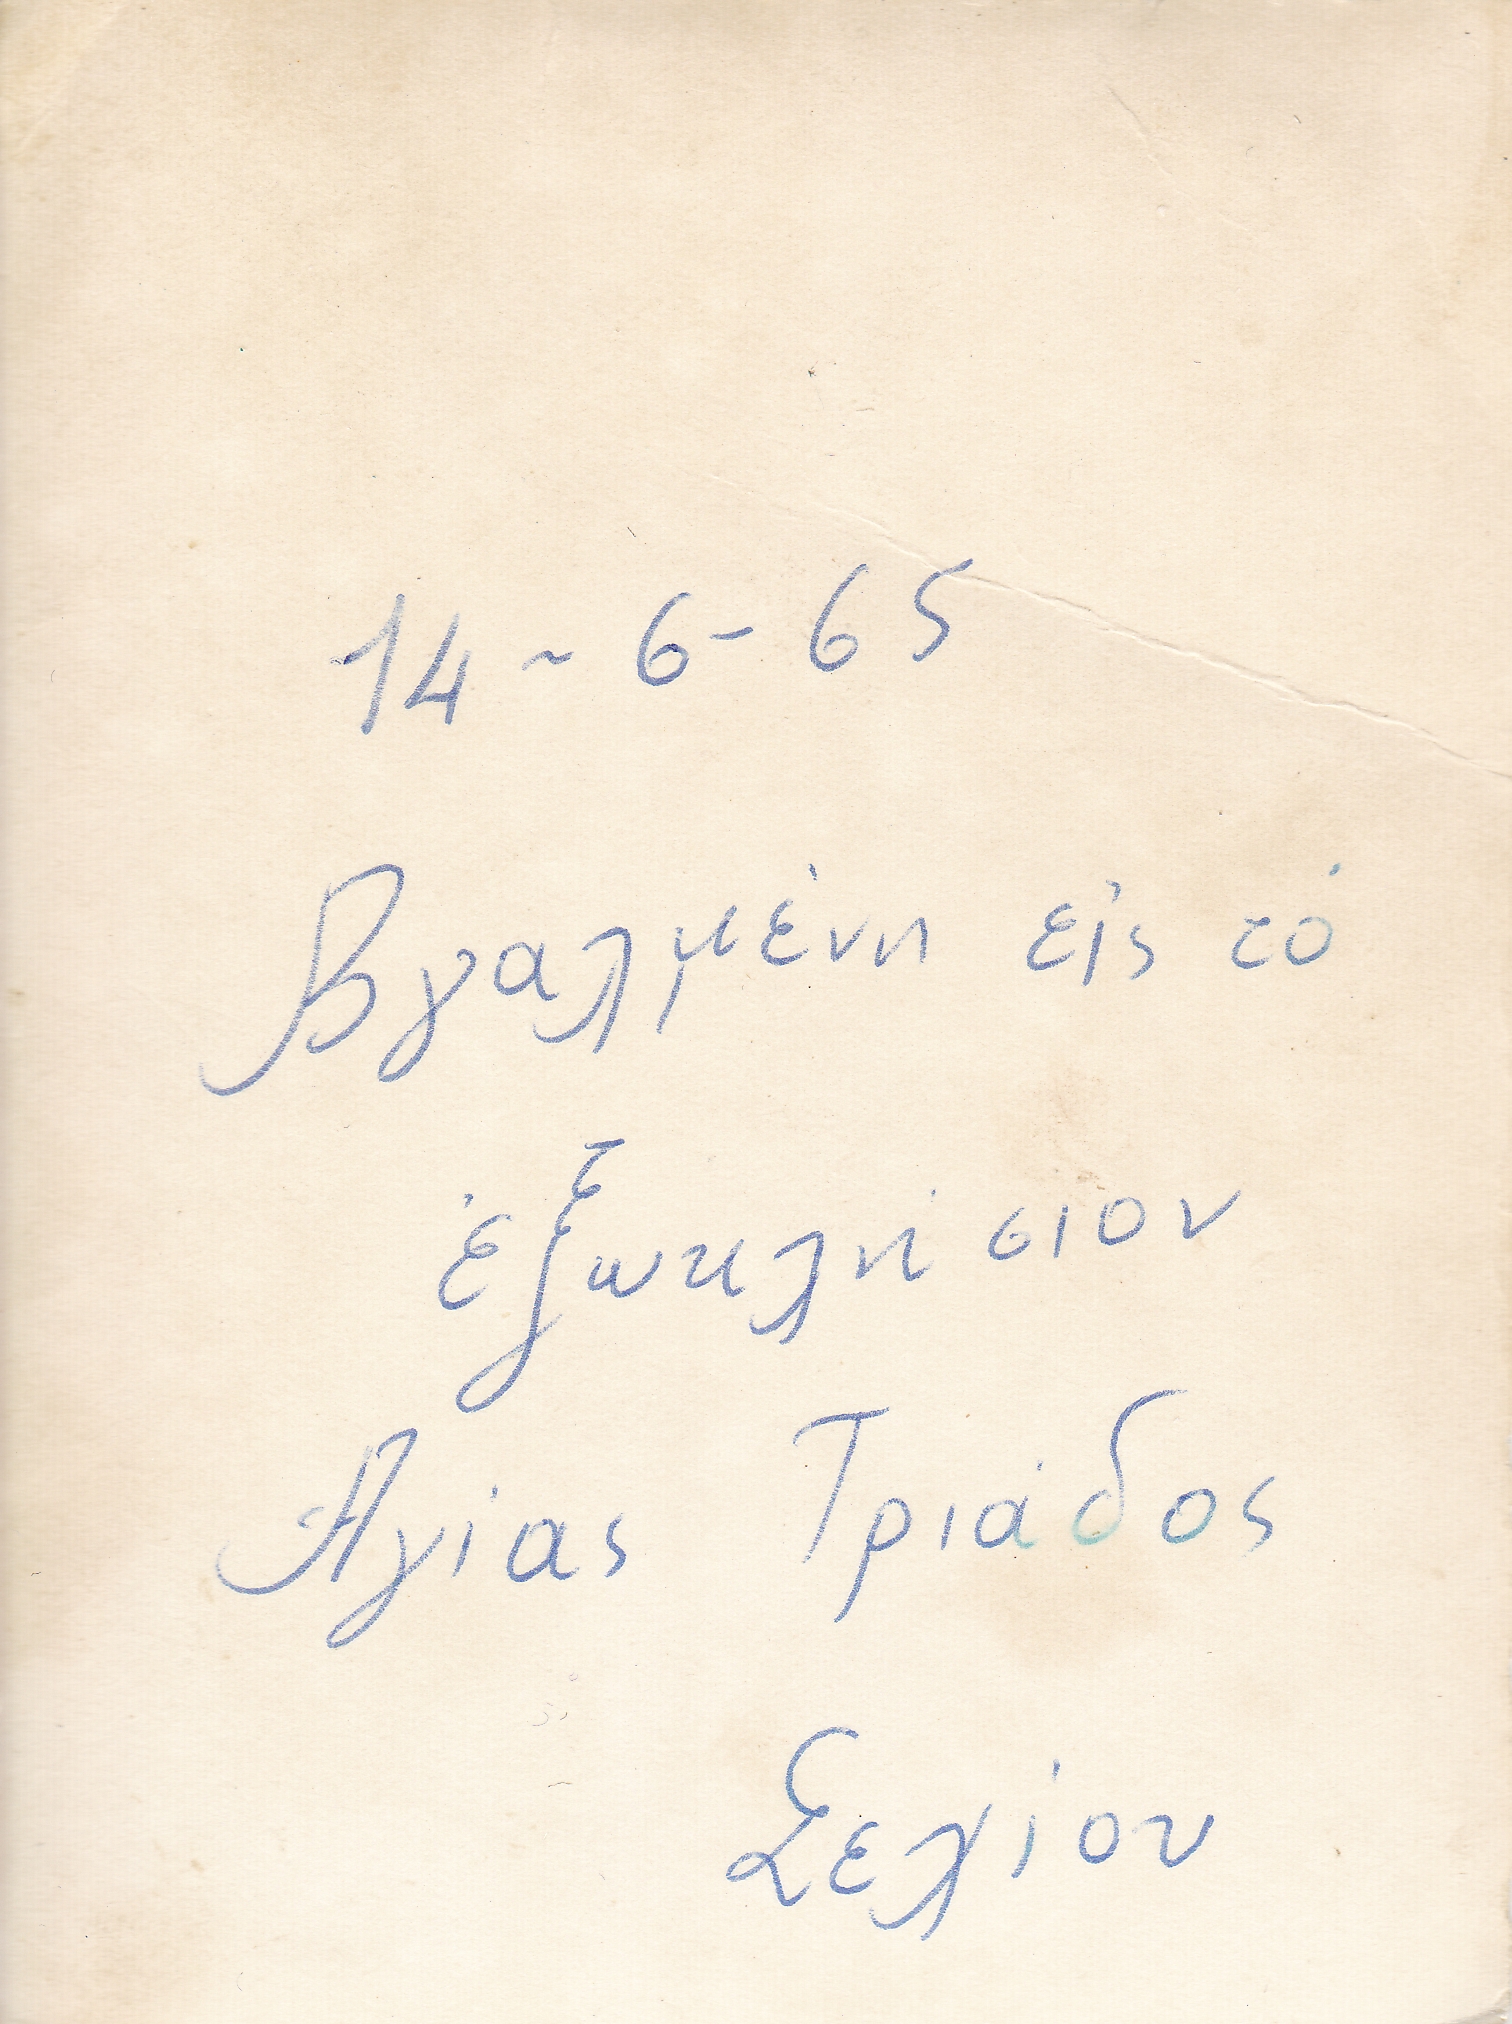 14-6-65
Βγαλμένη εἰς τό
ἐξωκλήσιον
Ἁγίας Τριάδος
Σελίου